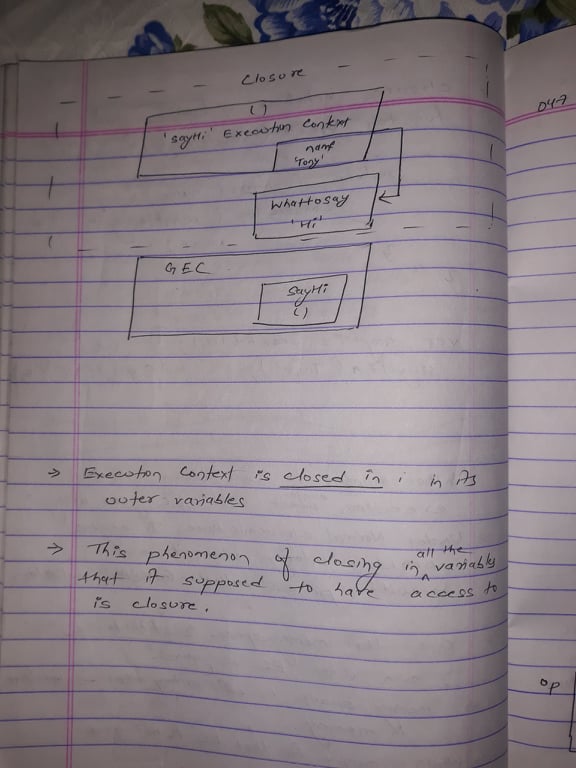 Closure
( )
'sayHi' Execution Context
name
'Tony'
whattosay
'Hi'
GEC
SayHi
( )
→ Execution Context is closed in in its
outer variables
→ This phenomenon of closing in all the variables
that it supposed to have access to
is closure.
op